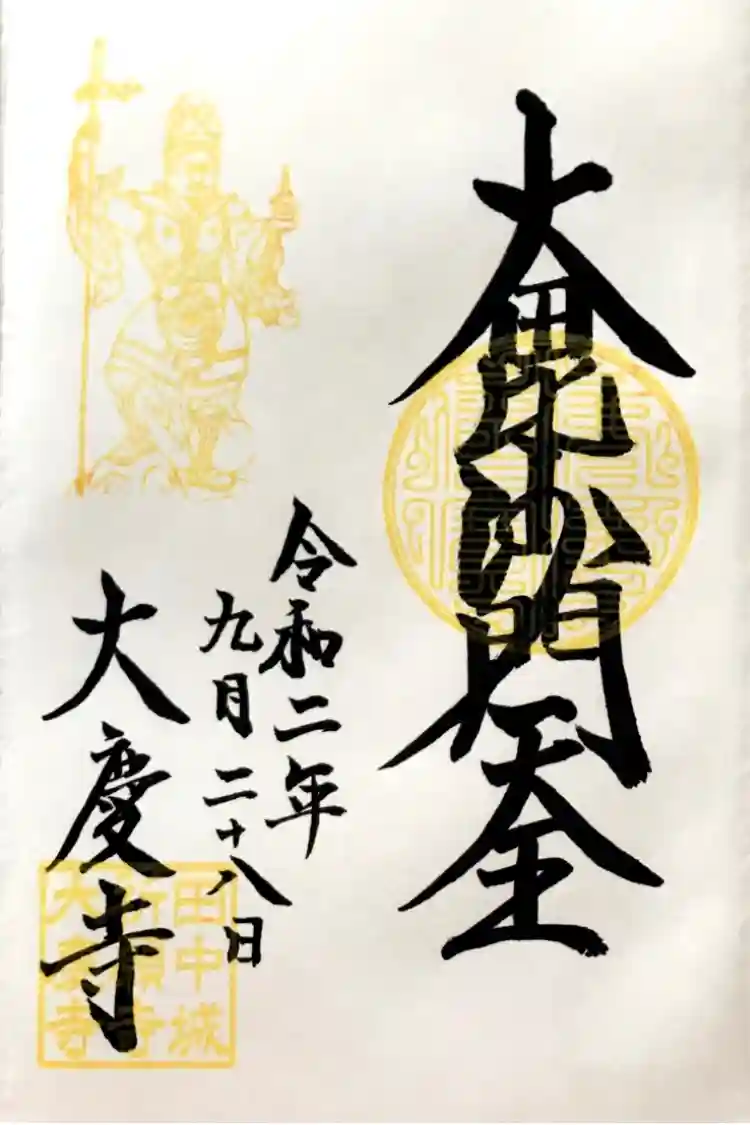 大毘沙門天王
令和二年
九月二十八日
大慶寺
田中城
祈願寺
大慶寺